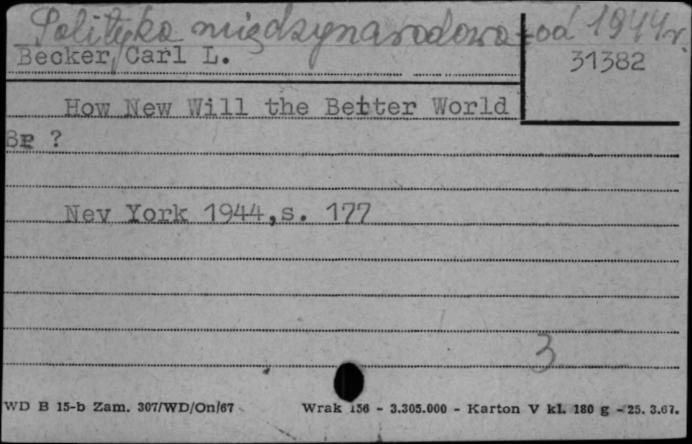 Polityka międzynarodowa - od 1944 r.
Becker Carl L.
31382
How New Will the Better World
Be ?
New York 1944,s. 177
3
WD B 15-b Zam. 307/WD/On/67 Wrak 156 - 3.305.000 - Karton V kl. 180 g - 25. 3.67.